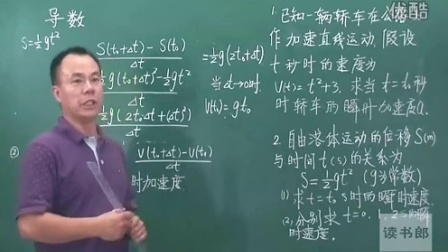 优酷
导数
S=½gt²
S(t₀+Δt)-S(t₀)
Δt
½g(t₀+Δt)²-½gt₀²
Δt
½g(2t₀Δt+(Δt)²)
Δt
=½g(2t₀+Δt)
V(t₀)=gt₀
②
V(t₀+Δt)-V(t₀)
Δt
时加速度.
1. 已知一辆轿车在公路上
作加速直线运动,假设
t秒时的速度为
V(t)=t²+3. 求当t=t₀秒
时轿车的瞬时加速度a.
2. 自由落体运动的位移S(m)
与时间t(s)的关系为
S=½gt² (g为常数)
(1) 求t=t₀s时的瞬时速度.
(2) 分别求t=0, 1, 2
时
读书郎